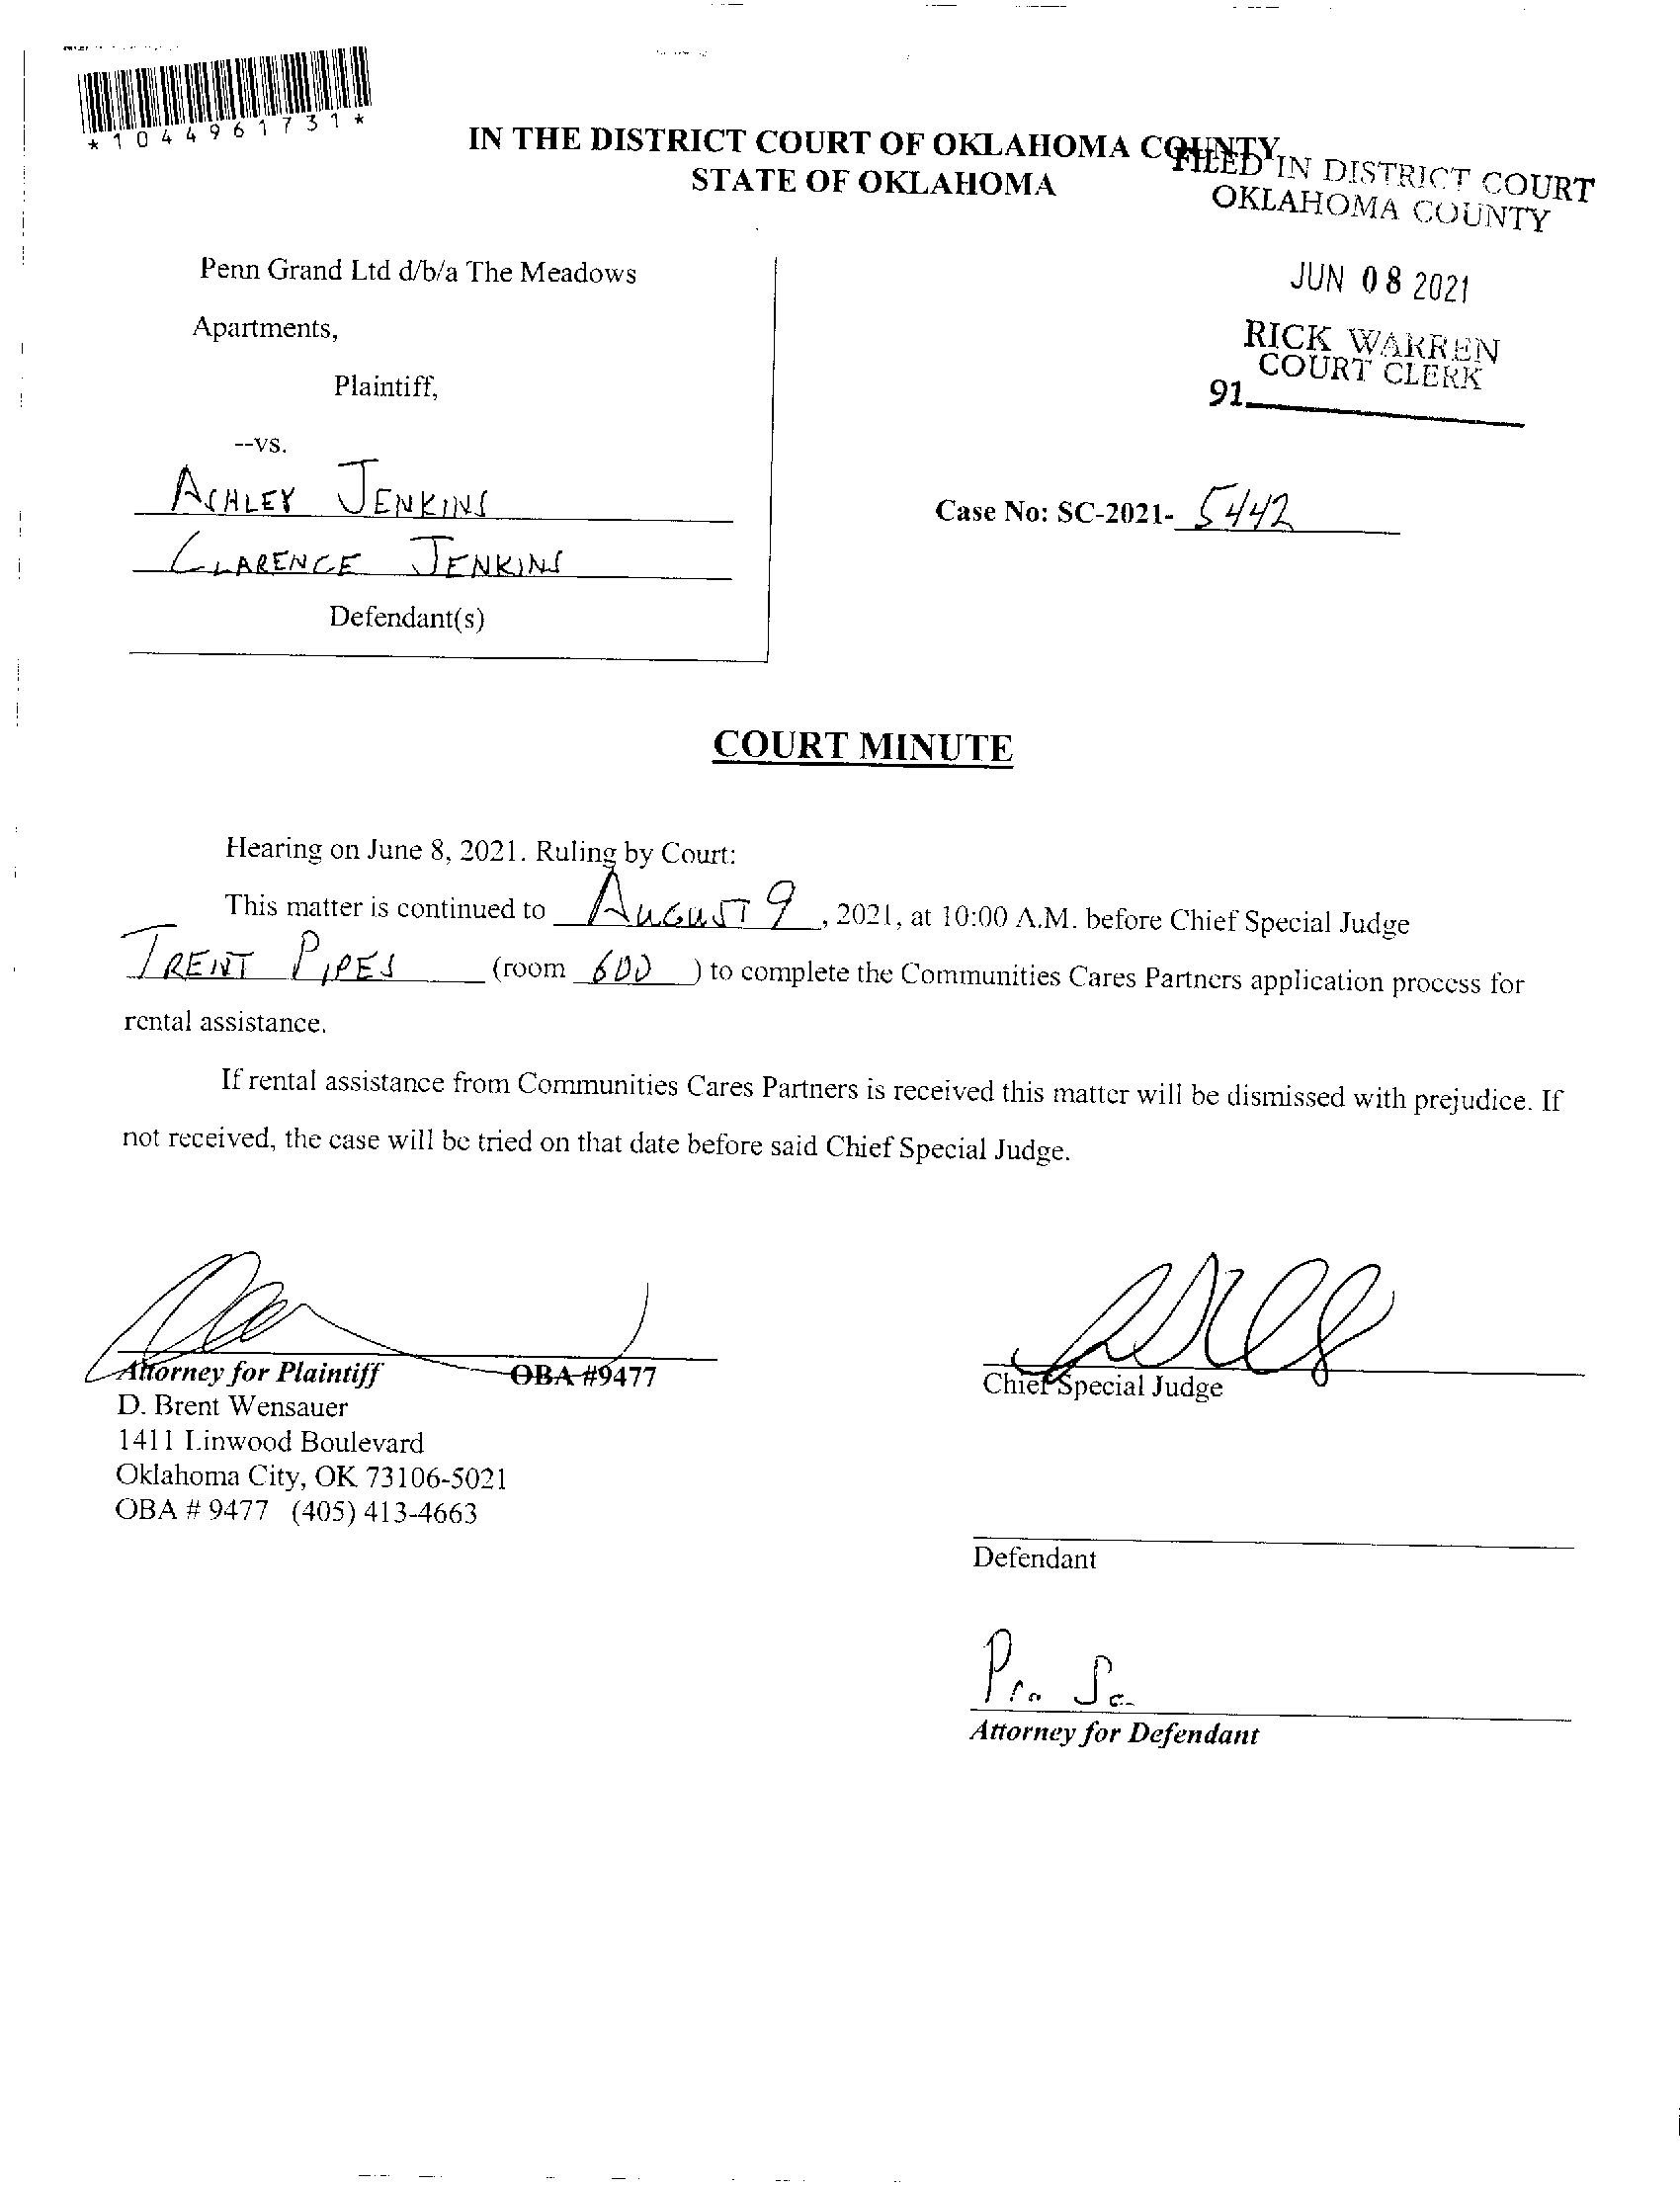 *1044961731*
IN THE DISTRICT COURT OF OKLAHOMA COUNTY
STATE OF OKLAHOMA
FILED IN DISTRICT COURT
OKLAHOMA COUNTY
JUN 08 2021
RICK WARREN
COURT CLERK
91
Penn Grand Ltd d/b/a The Meadows
Apartments,
Plaintiff,
--vs.
ASHLEY JENKINS
CLARENCE JENKINS
Defendant(s)
Case No: SC-2021- 5442
COURT MINUTE
Hearing on June 8, 2021. Ruling by Court:
This matter is continued to AUGUST 9, 2021, at 10:00 A.M. before Chief Special Judge
TRENT PIPES (room 600 ) to complete the Communities Cares Partners application process for
rental assistance.
If rental assistance from Communities Cares Partners is received this matter will be dismissed with prejudice. If
not received, the case will be tried on that date before said Chief Special Judge.
Attorney for Plaintiff OBA #9477
D. Brent Wensauer
1411 Linwood Boulevard
Oklahoma City, OK 73106-5021
OBA # 9477 (405) 413-4663
Chief Special Judge
Defendant
Pro Se
Attorney for Defendant